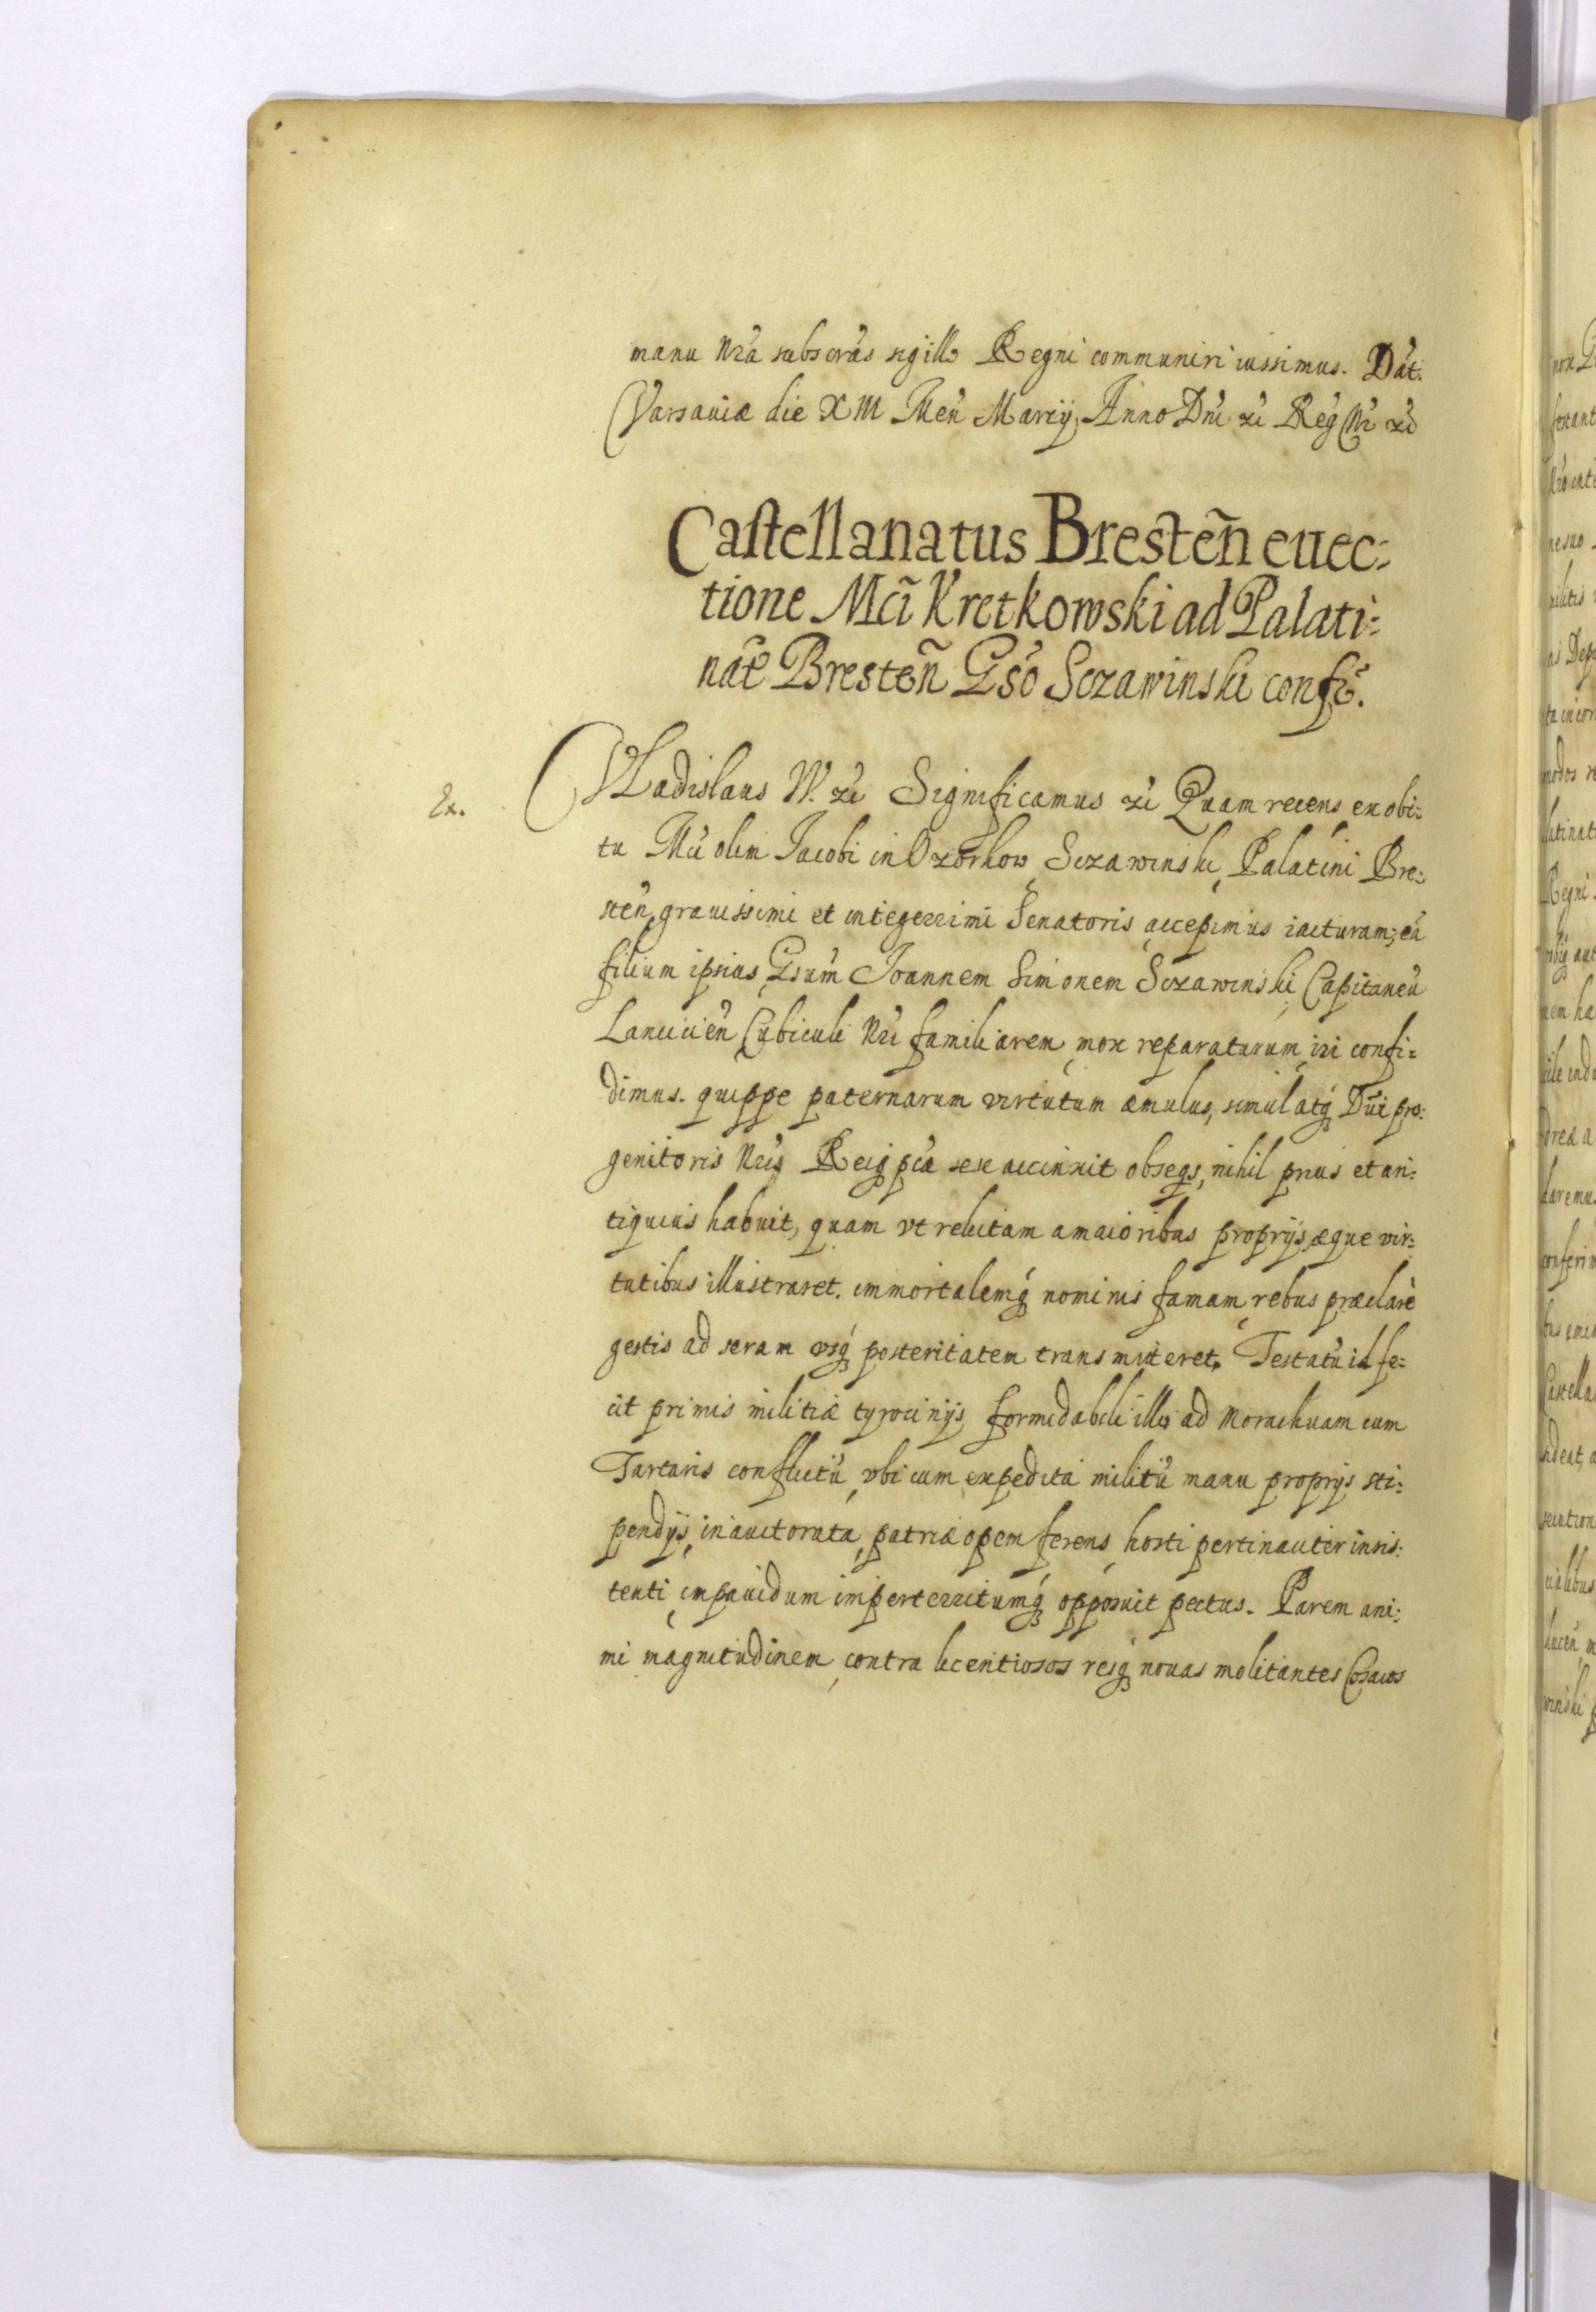 manu Nrã subscrãs sigillo Regni communiri iussimus. Dat.
Varsauiæ die XIII Men Marty, Anno Dni zc Reg Nri zc
Castellanatus Bresteñ euec:
tione Mci Kretkowski ad Palati:
nat̃ Bresteñ Gso Sczawinski confr.
Ex.
VLadislaus IV. zc Significamus zc Quam recens ex obi:
tu Mci olim Iacobi in Ozorkow Sczawinski, Palatini Bre:
sten, grauissimi et integerrimi Senatoris accepimus iacturam, eã
filium ipsius Gsum Ioannem Simonem Sczawinski Capitaneũ
Lanciciẽn Cubiculi Nri familiarem mox reparaturum iri confi:
dimus. quippe paternarum virtutum æmulus, simul atq Dni pro:
genitoris Nriq Reiq pcæ sese accinxit obseqs, nihil prius et an:
tiquius habuit, quam vt relictam a maioribus proprijs æque vir:
tutibus illustraret. immortalemq nominis famam rebus præclarè
gestis ad seram vsq posteritatem transmitteret. Testatũ id fe:
cit primis militiæ tyrocinijs formidabili illo ad Morachuam cum
Tartaris conflictu, vbi cum expedita militũ manu proprijs sti:
pendijs, inauctorata, patriæ opem ferens hosti pertinaciter insis:
tenti impauidum imperterritumq opposuit pectus. Parem ani:
mi magnitudinem contra licentiosos resq nouas molitantes Cosacos